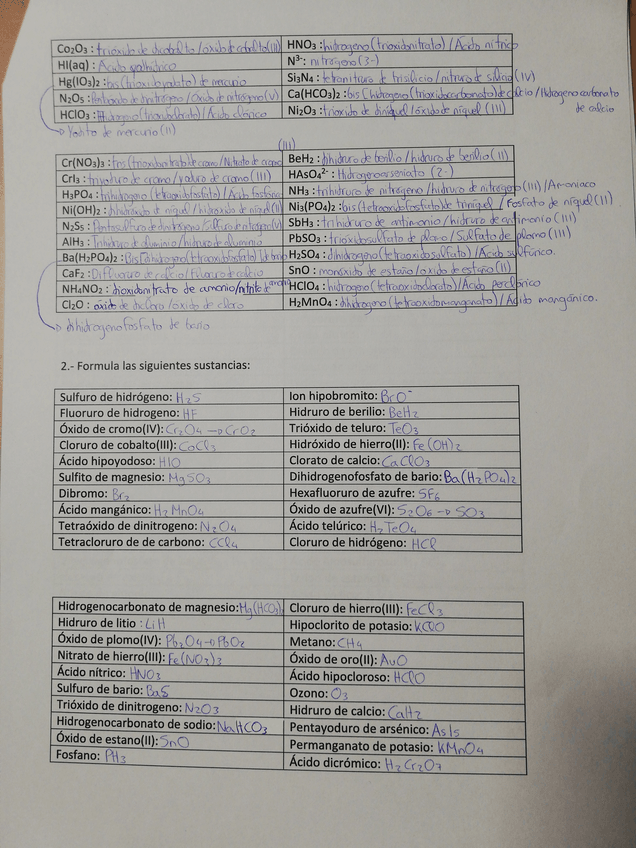 Co₂O₃ : trióxido de dicobalto/óxido de cobalto(III)
HNO₃ : hidrogeno(trioxidonitrato)/Ácido nítrico
HI(aq) : Ácido yodhídrico
N³⁻: nitrógeno(3-)
Hg(IO₃)₂ : bis(trioxidoyodato) de mercurio
Si₃N₄ : tetranitruro de trisilicio/nitruro de silicio(IV)
N₂O₅ : Pentaóxido de dinitrógeno/Óxido de nitrógeno(V)
Ca(HCO₃)₂ : bis(hidrogeno(trioxidocarbonato) de calcio/Hidrogenocarbonato de calcio
HClO₃ : Hidrogeno(trioxidoclorato)/Ácido clórico
Ni₂O₃ : trióxido de diníquel/óxido de níquel (III)
Yodito de mercurio (II)
(III)
Cr(NO₃)₃ : tris(trioxidonitrato) de cromo/Nitrato de cromo
BeH₂ : dihidruro de berilio/hidruro de berilio(II)
CrI₃ : triyoduro de cromo/yoduro de cromo (III)
HAsO₄²⁻ : Hidrogenoarseniato (2-)
H₃PO₄ : trihidrogeno(tetraoxidofosfato)/Ácido fosfórico
NH₃ : trihidruro de nitrógeno/hidruro de nitrogeno(III)/Amoniaco
Ni(OH)₂ : dihidróxido de níquel/hidróxido de níquel(II)
Ni₃(PO₄)₂ : bis(tetraoxidofosfato) de triníquel/fosfato de níquel(II)
N₂S₅ : Pentasulfuro de dinitrógeno/Sulfuro de nitrógeno(V)
SbH₃ : trihidruro de antimonio/hidruro de antimonio(III)
AlH₃ : Trihidruro de aluminio/hidruro de aluminio
PbSO₃ : trioxidosulfato de plomo/Sulfato de plomo(III)
Ba(H₂PO₄)₂ : Bis[dihidrogeno(tetraoxidofosfato)] de bario
H₂SO₄ : dihidrogeno(tetraoxidosulfato)/Ácido sulfúrico.
CaF₂ : Difluoruro de calcio/Fluoruro de calcio
SnO : monóxido de estaño/óxido de estaño(II)
NH₄NO₂ : dioxidonitrato de amonio/nitrito de amonio
HClO₄ : hidrogeno(tetraoxidoclorato)/Ácido perclórico
Cl₂O : óxido de dicloro/óxido de cloro
H₂MnO₄ : dihidrogeno(tetraoxidomanganato)/Ácido mangánico.
dihidrogenofosfato de bario
2.- Formula las siguientes sustancias:
Sulfuro de hidrógeno: H₂S
Ion hipobromito: BrO⁻
Fluoruro de hidrogeno: HF
Hidruro de berilio: BeH₂
Óxido de cromo(IV): Cr₂O₄ → CrO₂
Trióxido de teluro: TeO₃
Cloruro de cobalto(III): CoCl₃
Hidróxido de hierro(II): Fe(OH)₂
Ácido hipoyodoso: HIO
Clorato de calcio: CaClO₃
Sulfito de magnesio: MgSO₃
Dihidrogenofosfato de bario: Ba(H₂PO₄)₂
Dibromo: Br₂
Hexafluoruro de azufre: SF₆
Ácido mangánico: H₂MnO₄
Óxido de azufre(VI): S₂O₆ → SO₃
Tetraóxido de dinitrogeno: N₂O₄
Ácido telúrico: H₂TeO₄
Tetracloruro de de carbono: CCl₄
Cloruro de hidrógeno: HCl
Hidrogenocarbonato de magnesio: Mg(HCO₃)₂
Cloruro de hierro(III): FeCl₃
Hidruro de litio : LiH
Hipoclorito de potasio: KClO
Óxido de plomo(IV): Pb₂O₄ → PbO₂
Metano: CH₄
Nitrato de hierro(III): Fe(NO₃)₃
Óxido de oro(II): AuO
Ácido nítrico: HNO₃
Ácido hipocloroso: HClO
Sulfuro de bario: BaS
Ozono: O₃
Trióxido de dinitrogeno: N₂O₃
Hidruro de calcio: CaH₂
Hidrogenocarbonato de sodio: NaHCO₃
Pentayoduro de arsénico: AsI₅
Óxido de estaño(II): SnO
Permanganato de potasio: KMnO₄
Fosfano: PH₃
Ácido dicrómico: H₂Cr₂O₇